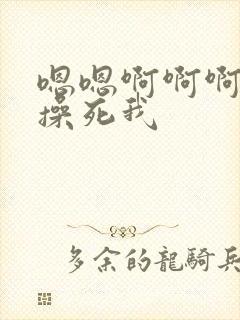 嗯嗯啊啊啊
操死我
多余的龍騎兵